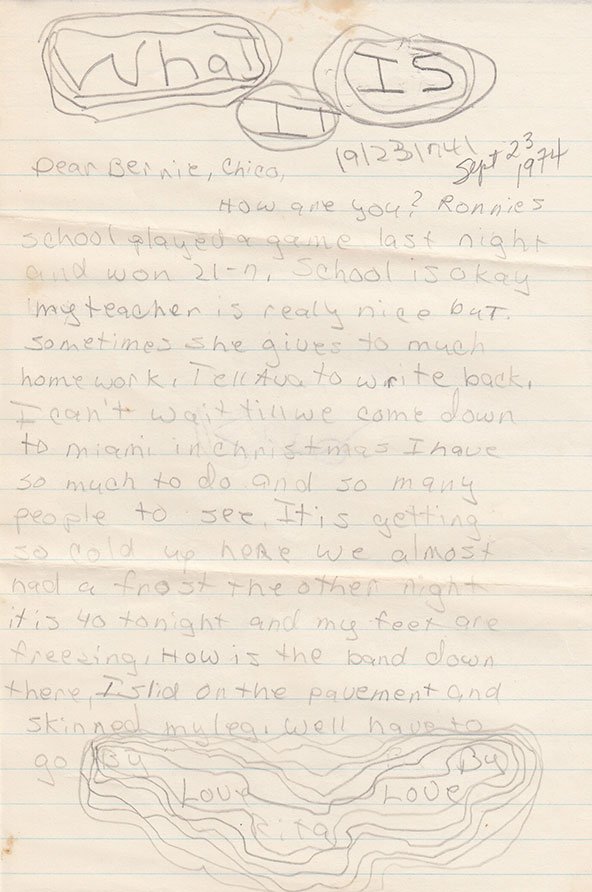 What IS
IT
19/23/1974/ Sept 23
1974
Dear Bernie, Chico,
How are you? Ronnies
school played a game last night
and won 21-7. School is okay
my teacher is realy nice but.
sometimes she gives to much
homework. Tell Ava to write back.
I can't wait till we come down
to miami in christmas I have
so much to do and so many
people to see. It is getting
so cold up here we almost
had a frost the other night
it is 40 tonight and my feet are
freezing. How is the band down
there, I slid on the pavement and
skinned my leg. Well have to
go By By
Love Love
Rita